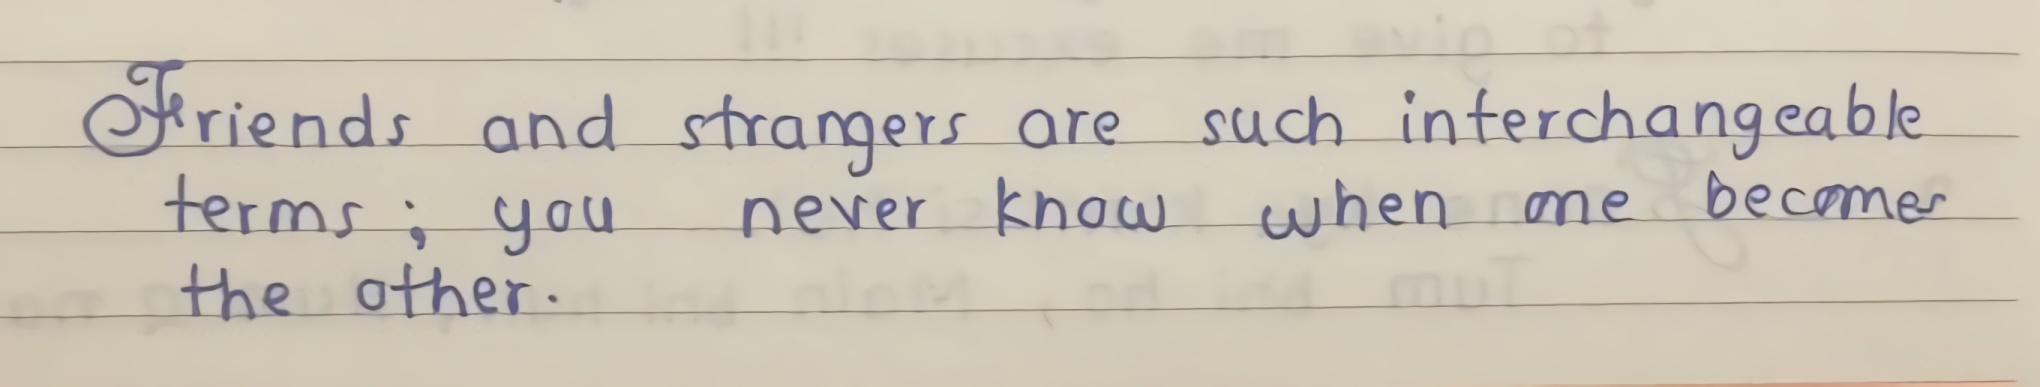 Friends and strangers are such interchangeable
terms; you never know when one becomes
the other.